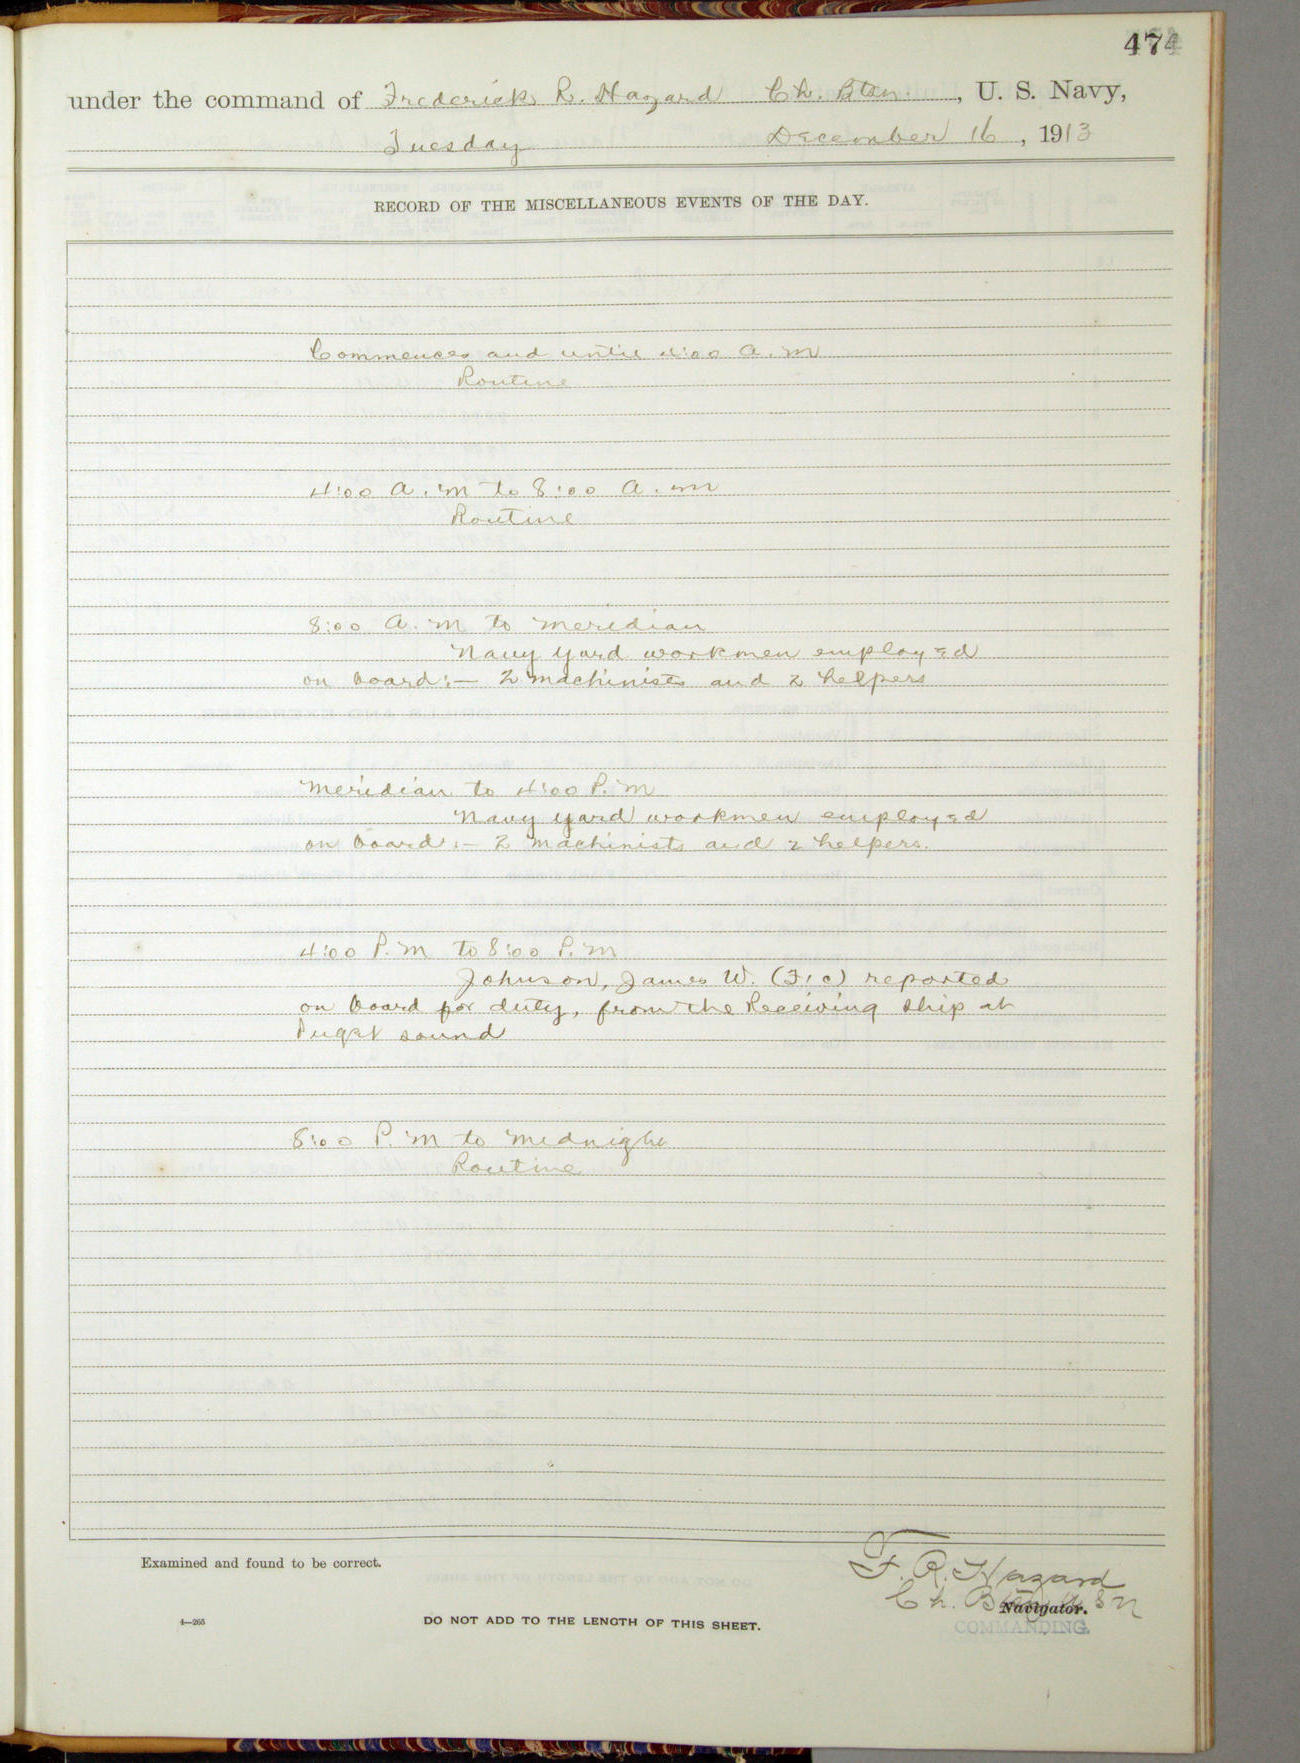 474
under the command of Frederick R. Hazard Ch. Btsn. , U. S. Navy,
Tuesday December 16 , 1913
RECORD OF THE MISCELLANEOUS EVENTS OF THE DAY.
Commences and until 4:00 a.m
Routine
4:00 a.m to 8:00 a.m
Routine
8:00 a.m to meridian
Navy Yard workmen employed
on board:— 2 machinists and 2 helpers
Meridian to 4:00 P.m
Navy Yard workmen employed
on board:— 2 machinists and 2 helpers.
4:00 P.m to 8:00 P.m
Johnson, James W. (F1c) reported
on board for duty, from the Receiving ship at
Puget sound
8:00 P.m to Midnight
Routine
Examined and found to be correct.
F. R. Hazard
Ch. Btsn U S N
Navigator.
COMMANDING.
4—265
DO NOT ADD TO THE LENGTH OF THIS SHEET.